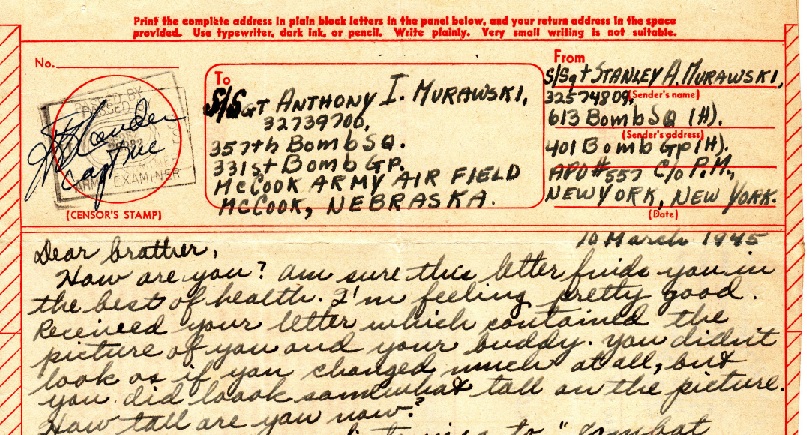 Print the complete address in plain block letters in the panel below, and your return address in the space
provided. Use typewriter, dark ink, or pencil. Write plainly. Very small writing is not suitable.
No.
To
S/Sgt ANTHONY I. MURAWSKI,
32739700,
357th Bomb SQ.
331st Bomb GP.
McCOOK ARMY AIR FIELD
McCOOK, NEBRASKA.
From
S/Sgt STANLEY A. MURAWSKI,
32574809,
(Sender's name)
613 Bomb SQ (H).
(Sender's address)
401 Bomb GP (H).
APO # 557 C/O P.M.,
NEW YORK, NEW YORK.
(Date)
PASSED BY
ARMY EXAMINER
Capt
(CENSOR'S STAMP)
10 March 1945
Dear brother,
How are you? Am sure this letter finds you in
the best of health. I'm feeling pretty good.
Received your letter which contained the
picture of you and your buddy. You didn't
look as if you changed much at all, but
you did loook somewhat tall on the picture.
How tall are you now?
to "Combat